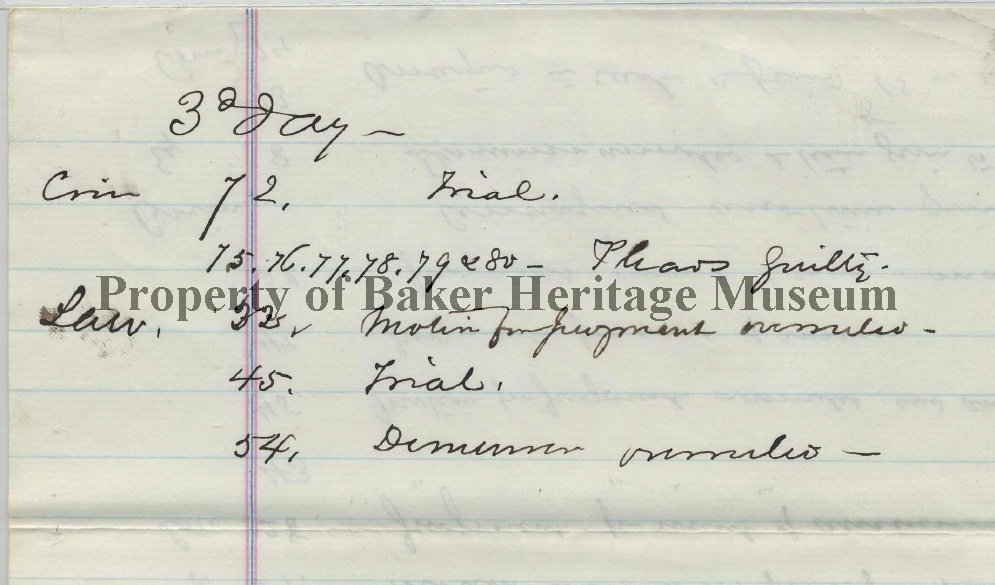 3d Day –
Crim 72. Trial.
75. 76. 77. 78. 79 & 80 – Pleads guilty.
Property of Baker Heritage Museum
Law. Motion for judgment overruled –
45. Trial.
54. Demurrer overruled –